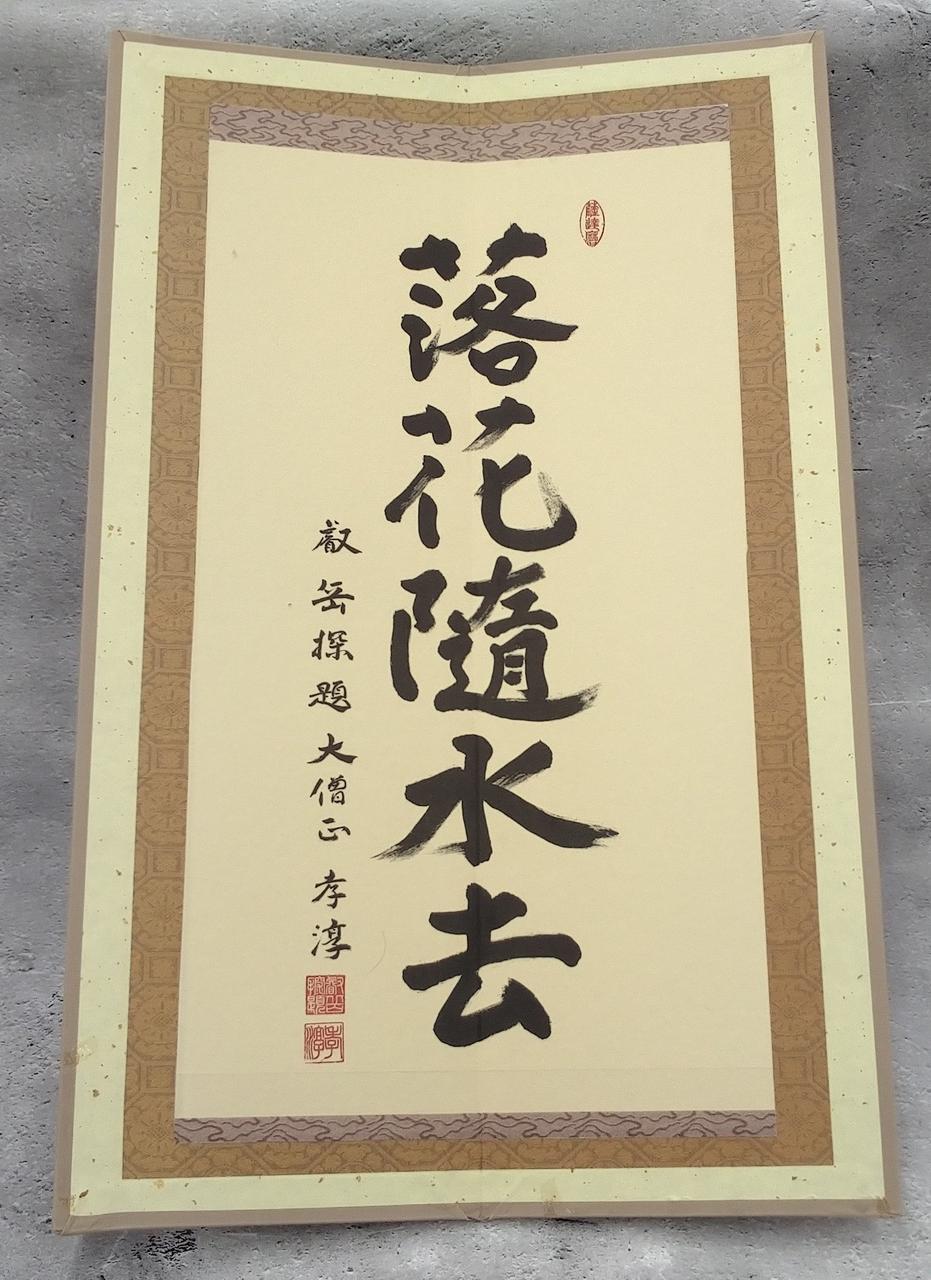 落花隨水去
叡岳探題大僧正孝淳
孝淳